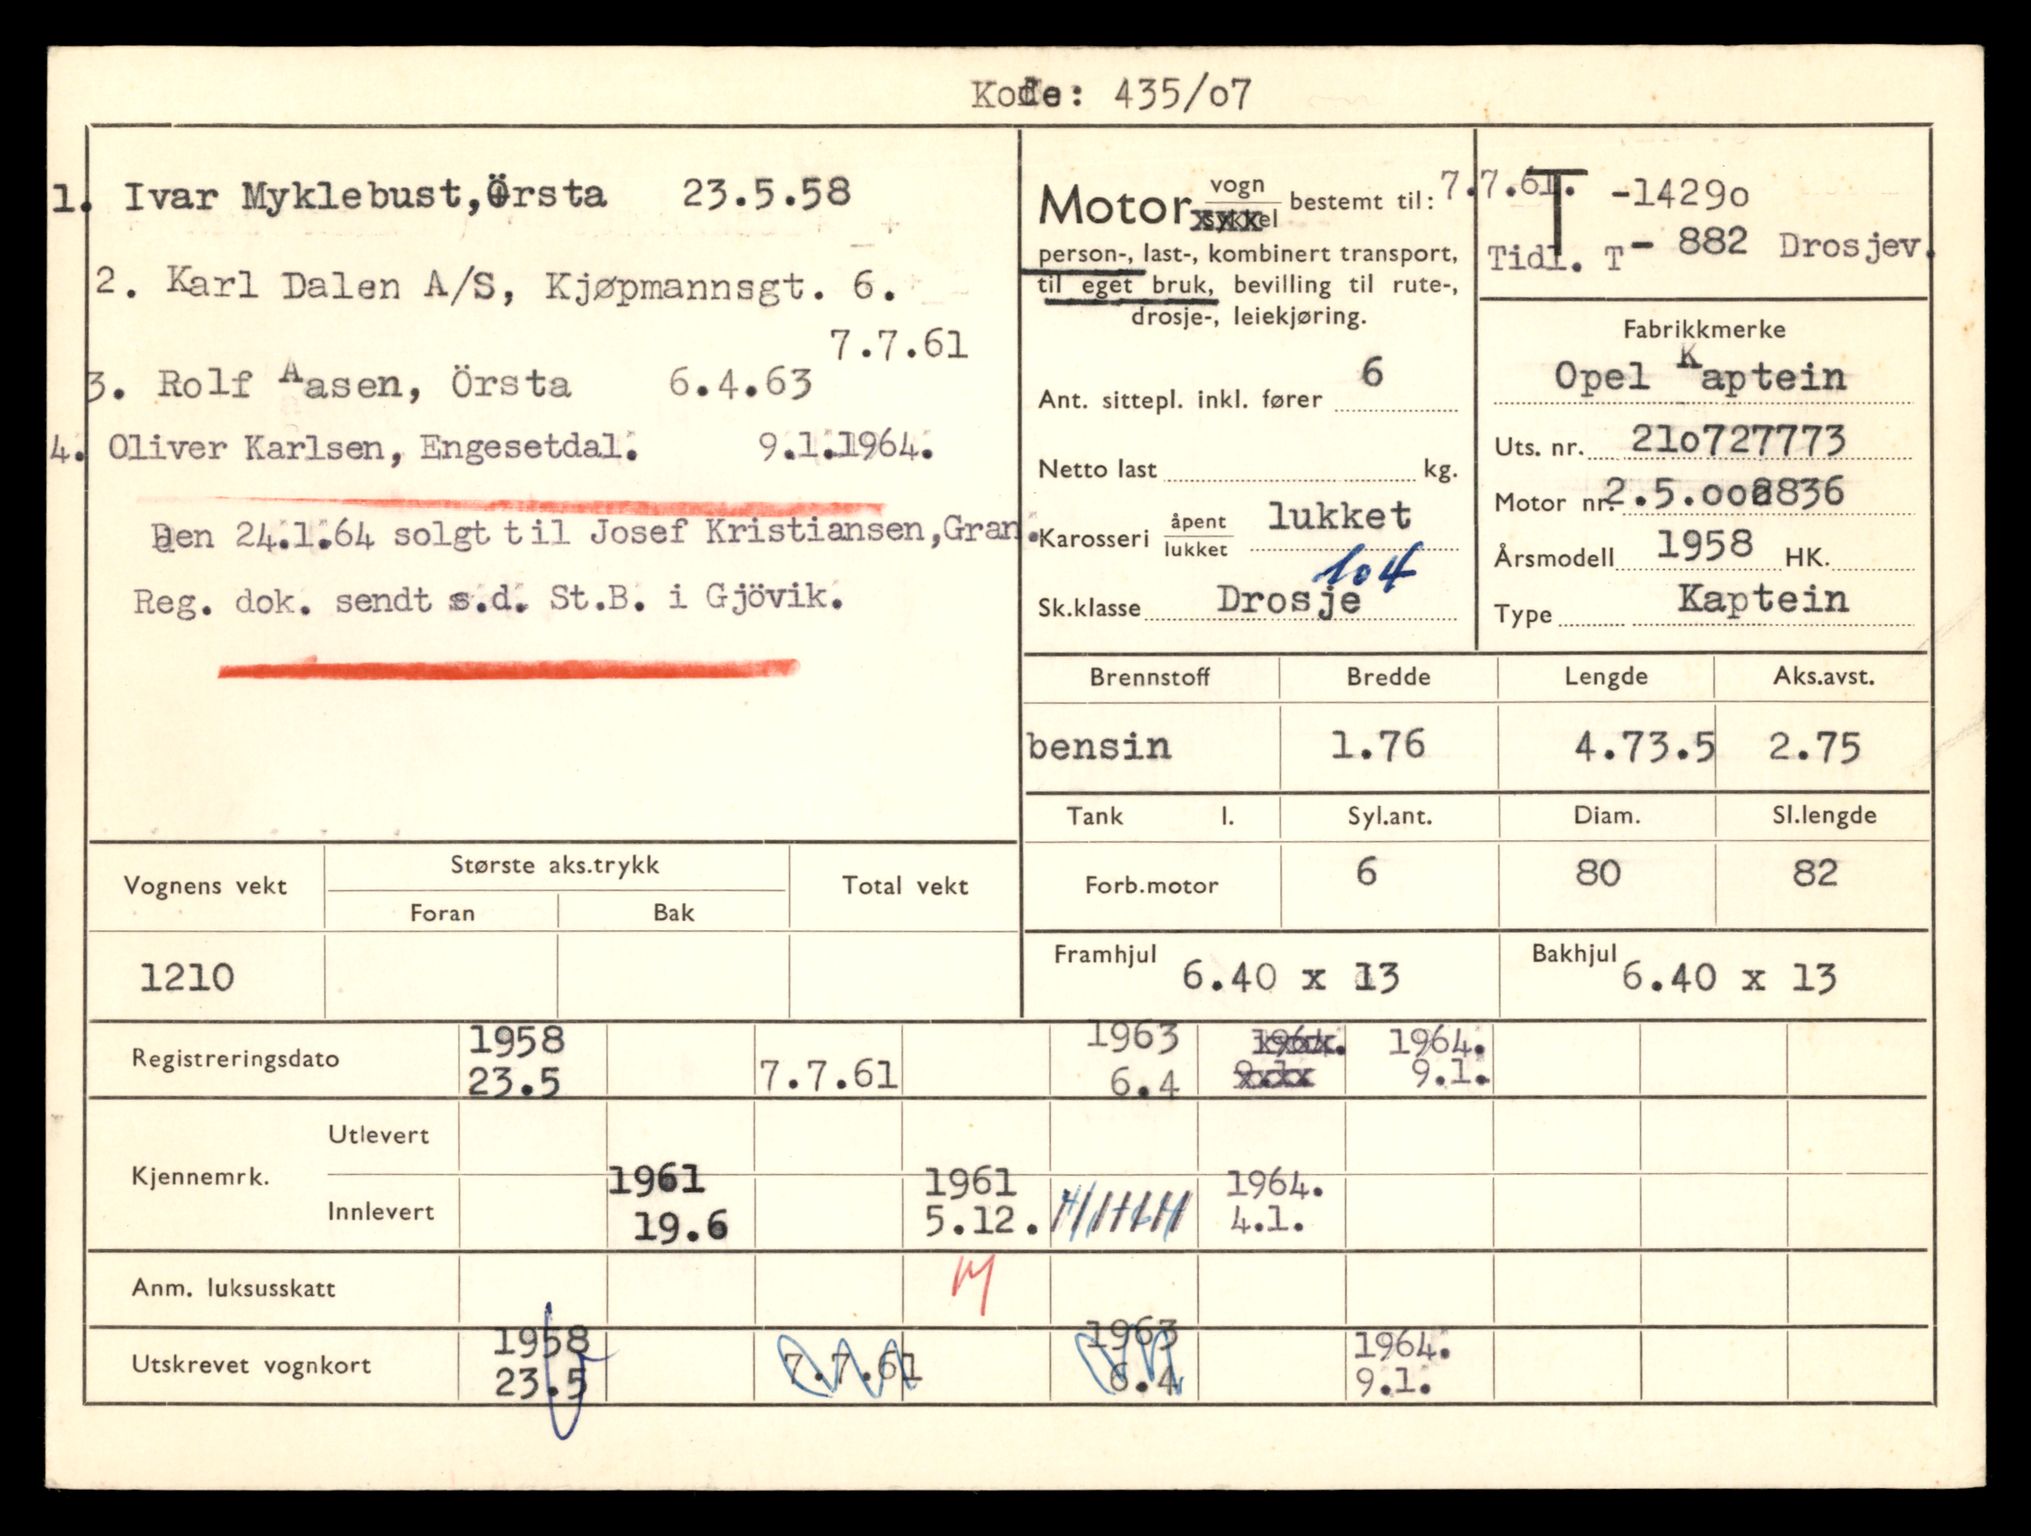 Kode: 435/o7
1. Ivar Myklebust, Örsta 23.5.58
2. Karl Dalen A/S, Kjøpmannsgt. 6.
7.7.61
3. Rolf Aasen, Örsta 6.4.63
4. Oliver Karlsen, Engesetdal. 9.1.1964.
Den 24.1.64 solgt til Josef Kristiansen, Gran.
Reg. dok. sendt s.d. St.B. i Gjövik.
Motor vogn bestemt til: 7.7.61.
sykkel
person-, last-, kombinert transport,
til eget bruk, bevilling til rute-,
drosje-, leiekjøring.
Ant. sittepl. inkl. fører 6
Netto last kg.
Karosseri åpent lukket lukket
104
Sk.klasse Drosje
T -1429o
Tidl. T - 882 Drosjev.
Fabrikkmerke
Opel Kaptein
Uts. nr. 21o727773
Motor nr. 2.5.oo 8836
Årsmodell 1958 HK.
Type Kaptein
Brennstoff Bredde Lengde Aks.avst.
bensin 1.76 4.73.5 2.75
Tank l. Syl.ant. Diam. Sl.lengde
Forb.motor 6 80 82
Framhjul 6.40 x 13 Bakhjul 6.40 x 13
Vognens vekt Største aks.trykk Total vekt
Foran Bak
1210
1958 1963 1964. 1964.
Registreringsdato 23.5 7.7.61 6.4 9.1.
Utlevert
Kjennemrk. 1961 1961 1964.
Innlevert 19.6 5.12. 4.1.
Anm. luksusskatt
1958 1963 1964.
Utskrevet vognkort 23.5 7.7.61 6.4 9.1.